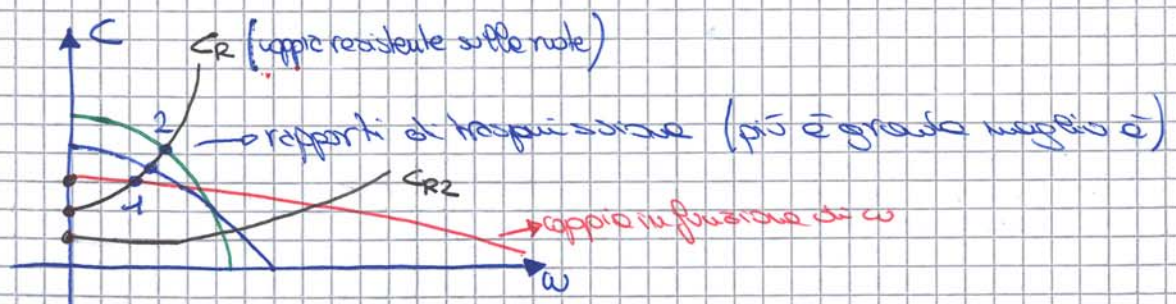 C
CR (coppia resistente sulle ruote)
2
→ rapporti di trasmissione (più è grande meglio è)
1
CR2
→ coppia in funzione di ω
ω